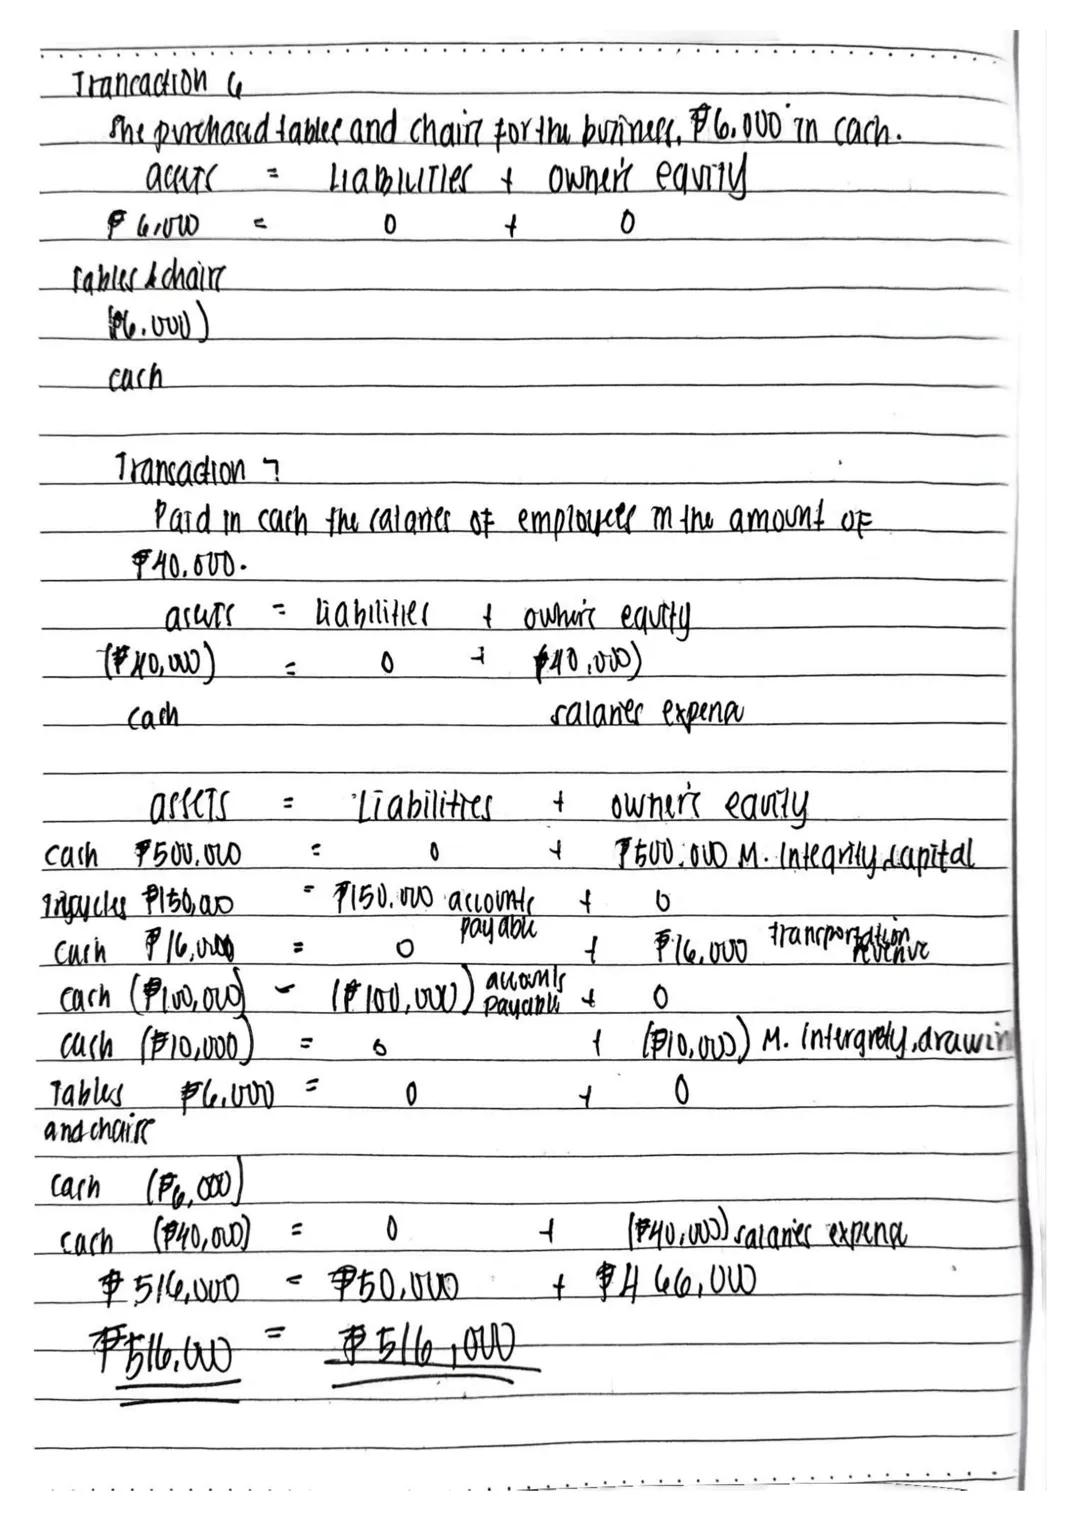 Trancaction 6
She purchased tables and chair for the business, ₱6,000 in cash.
assets = Liabilities + owner's equity
₱ 6,000 = 0 + 0
tables & chairs
(₱6,000)
cash
Transaction 7
Paid in cash the salaries of employees in the amount of
₱40,000.
assets = liabilities + owner's equity
(₱40,000) = 0 + ₱40,000)
cash salaries expense
assets = Liabilities + owner's equity
cash ₱500,000 = 0 + ₱500,000 M. Integrity, capital
Tricycles ₱150,000 = ₱150,000 accounts payable + 0
cash ₱16,000 = 0 + ₱16,000 transportation revenue
cash (₱100,000) - (₱100,000) accounts payable + 0
cash (₱10,000) = 0 + (₱10,000) M. Intergrety, drawin
Tables ₱6,000 = 0 + 0
and chairs
cash (₱6,000)
cash (₱40,000) = 0 + (₱40,000) salaries expense
₱ 516,000 = ₱50,000 + ₱466,000
₱516,000 = ₱516,000